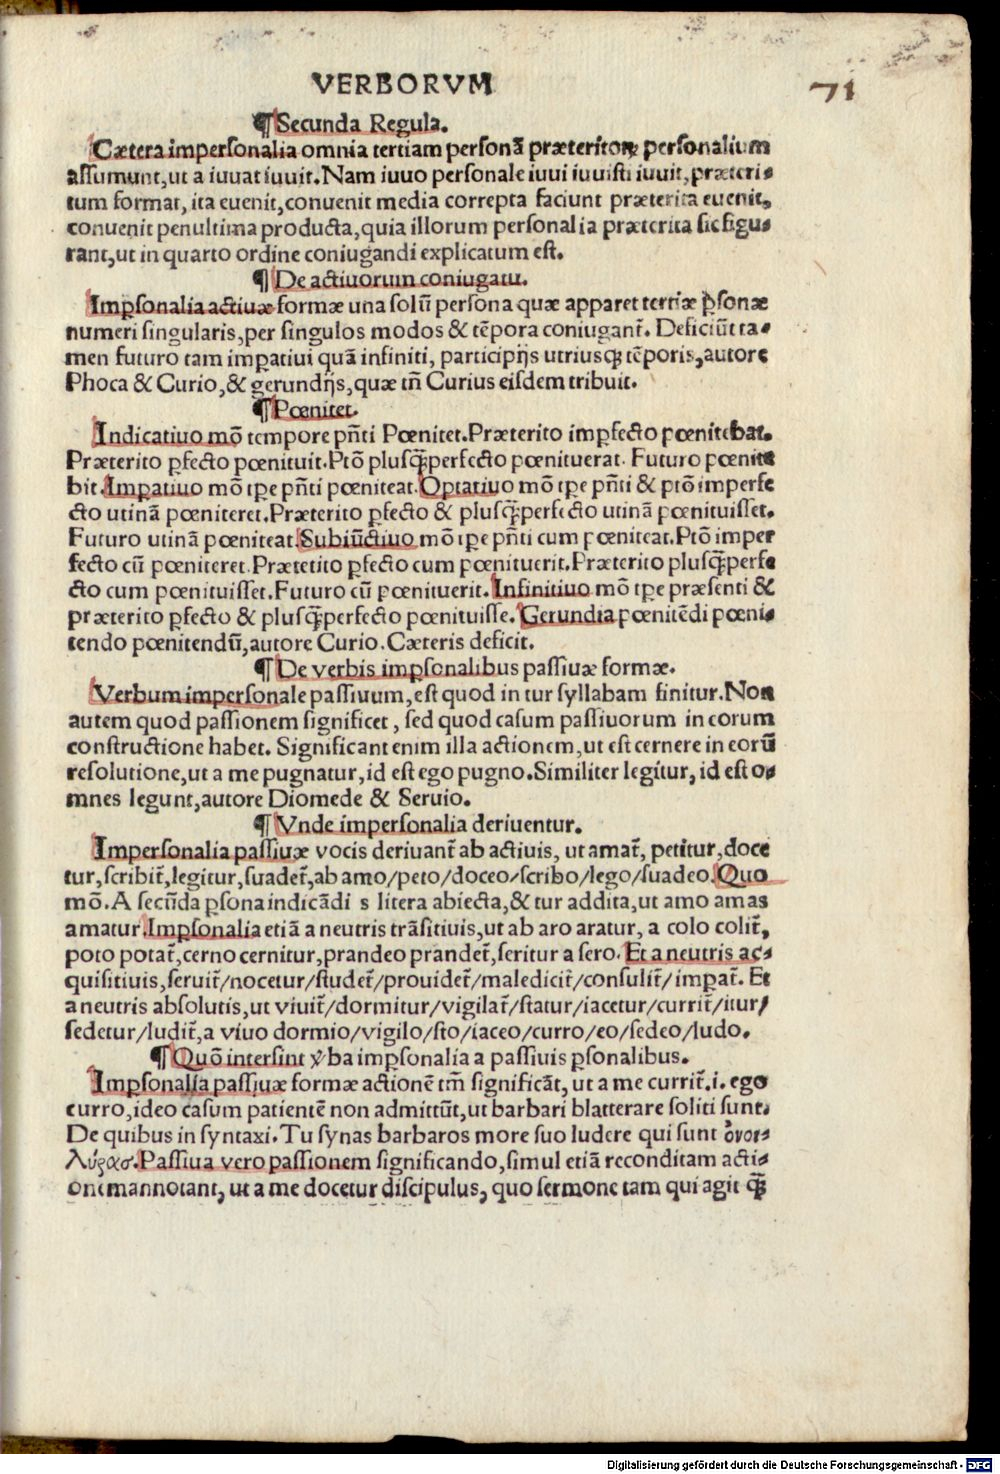 VERBORVM
71
¶ Secunda Regula.
Cætera impersonalia omnia tertiam personā præteritoꝝ personalium
assumunt, ut a iuuat iuuit. Nam iuuo personale iuui iuuisti iuuit, præteri-
tum format, ita euenit, conuenit media correpta faciunt præterita euenit,
conuenit penultima producta, quia illorum personalia præterita sic figu-
rant, ut in quarto ordine coniugandi explicatum est.
¶ De actiuorum coniugatu.
Imꝑsonalia actiuæ formæ una solū persona quæ apparet tertiæ ꝑsonæ
numeri singularis, per singulos modos & tēpora coniugant̄. Deficiūt ta-
men futuro tam imꝑatiui quā infiniti, participijs utriusqꝫ tēporis, autore
Phoca & Curio, & gerundijs, quæ tn̄ Curius eisdem tribuit.
¶ Pœnitet.
Indicatiuo mō tempore pn̄ti Pœnitet. Præterito imꝑfecto pœnitebat.
Præterito ꝑfecto pœnituit. Ptō plusqꝫ̄perfecto pœnituerat. Futuro pœnite
bit. Imꝑatiuo mō tꝑe pn̄ti pœniteat. Optatiuo mō tꝑe pn̄ti & ptō imperfe
cto utinā pœniteret. Præterito ꝑfecto & plusqꝫ̄perfecto utinā pœnituisset.
Futuro utinā pœniteat. Subiūctiuo mō tꝑe pn̄ti cum pœniteat. Ptō imper
fecto cū pœniteret. Prætetito ꝑfecto cum pœnituerit. Præterito plusqꝫ̄perfe
cto cum pœnituisset. Futuro cū pœnituerit. Infinitiuo mō tꝑe præsenti &
præterito ꝑfecto & plusqꝫ̄perfecto pœnituisse. Gerundia pœnitēdi pœni-
tendo pœnitendū, autore Curio. Cæteris deficit.
¶ De verbis imꝑsonalibus passiuæ formæ.
Verbum impersonale passiuum, est quod in tur syllabam finitur. Non
autem quod passionem significet, sed quod casum passiuorum in eorum
constructione habet. Significant enim illa actionem, ut est cernere in eorū
resolutione, ut a me pugnatur, id est ego pugno. Similiter legitur, id est o-
mnes legunt, autore Diomede & Seruio.
¶ Vnde impersonalia deriuentur.
Impersonalia passiuæ vocis deriuant̄ ab actiuis, ut amat̄, petitur, doce
tur, scribit̄, legitur, suadet̄, ab amo/peto/doceo/scribo/lego/suadeo. Quo
mō. A secūda ꝑsona indicādi s litera abiecta, & tur addita, ut amo amas
amatur. Imꝑsonalia etiā a neutris trāsitiuis, ut ab aro aratur, a colo colit̄,
poto potat̄, cerno cernitur, prandeo prandet̄, seritur a sero. Et a neutris ac-
quisitiuis, seruit̄/nocetur/studet̄/prouidet̄/maledicit̄/consulit̄/imꝑat̄. Et
a neutris absolutis, ut viuit̄/dormitur/vigilat̄/statur/iacetur/currit̄/itur/
sedetur/ludit̄, a viuo dormio/vigilo/sto/iaceo/curro/eo/sedeo/ludo.
¶ Quō intersint v̓ba imꝑsonalia a passiuis ꝑsonalibus.
Imꝑsonalia passiuæ formæ actionē tm̄ significāt, ut a me currit̄.i. ego
curro, ideo casum patientē non admittūt, ut barbari blatterare soliti sunt.
De quibus in syntaxi. Tu synas barbaros more suo ludere qui sunt ὄνοι-
λύρασ. Passiua vero passionem significando, simul etiā reconditam acti-
onem annotant, ut a me docetur discipulus, quo sermone tam qui agit qꝫ̄
Digitalisierung gefördert durch die Deutsche Forschungsgemeinschaft - DFG